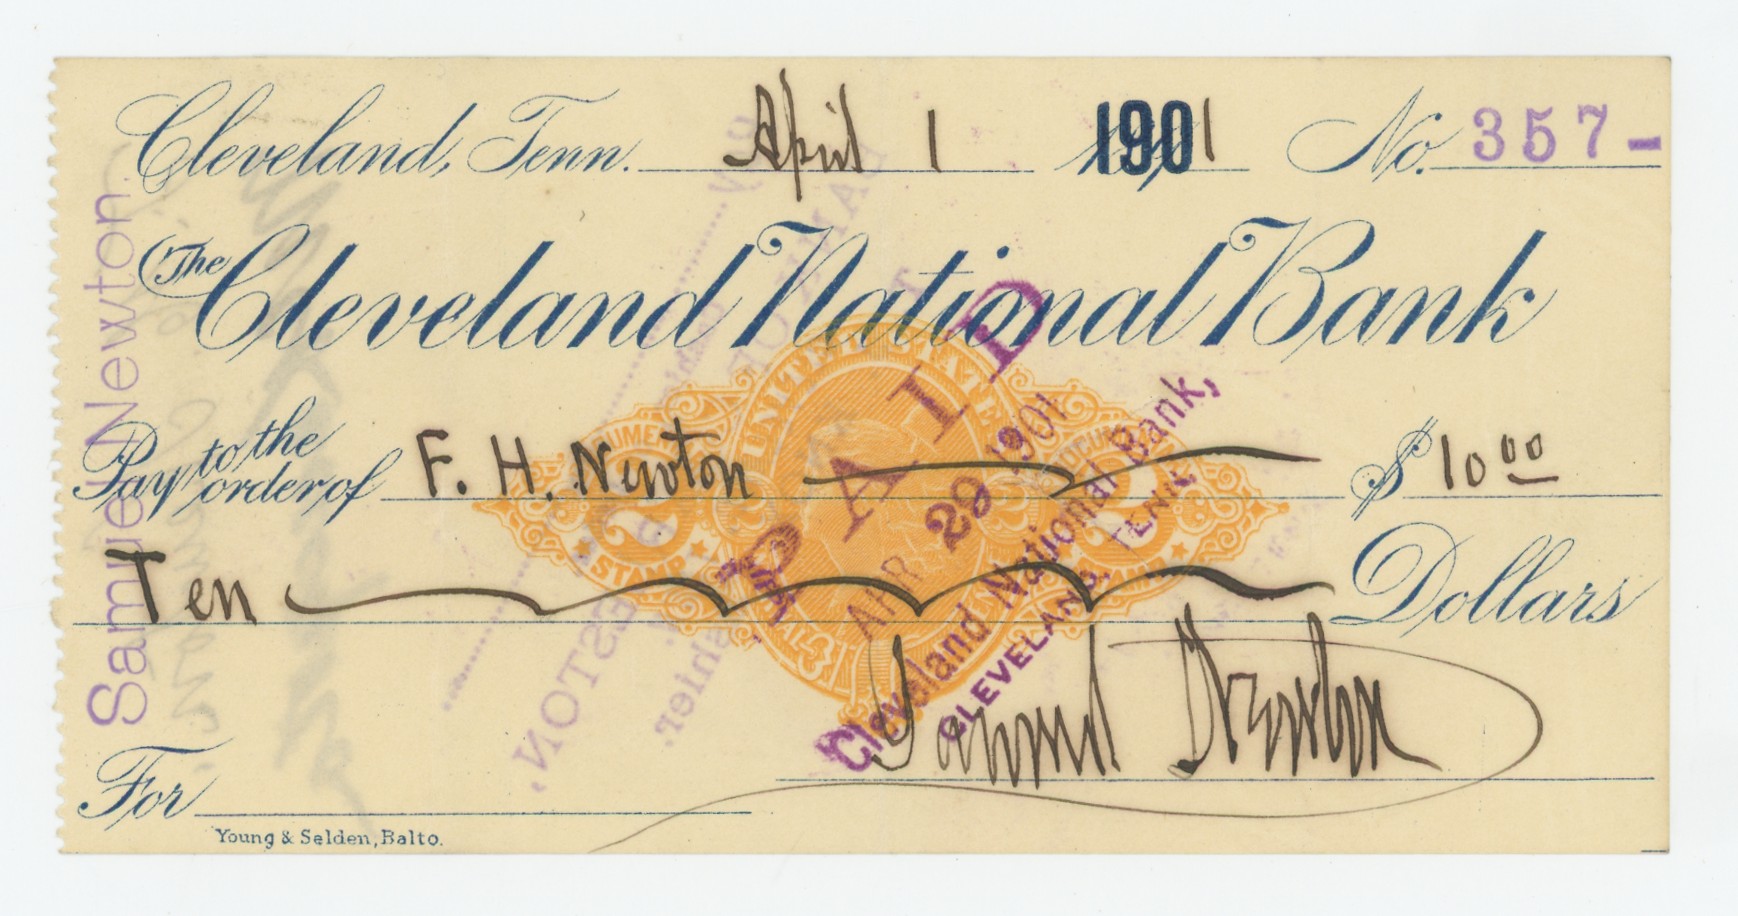 Cleveland, Tenn. April 1 1901 No. 357-
The Cleveland National Bank
Pay to the order of F. H. Newton $ 10 00
Ten Dollars
Samuel Newton
For
Young & Selden, Balto.
Samuel Newton.
UNITED STATES
DOCUMENTARY DOCUMENTARY
2 2 2 2
STAMP
PAID
APR 29 1901
Cleveland National Bank,
CLEVELAND, TENN.